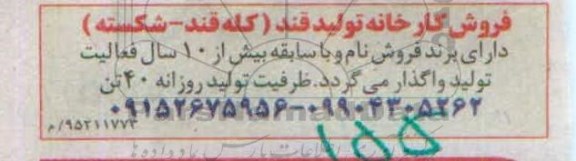 فروش کارخانه تولید قند (کله قند-شکسته)
دارای برند فروش نام و با سابقه بیش از ۱۰ سال فعالیت
تولید واگذار می گردد. ظرفیت تولید روزانه ۴۰ تن
۰۹۱۵۲۶۷۵۹۵۶-۰۹۹۰۴۳۰۵۲۶۲
۹۵۲۱۱۷۷۳/م
۱۵۵